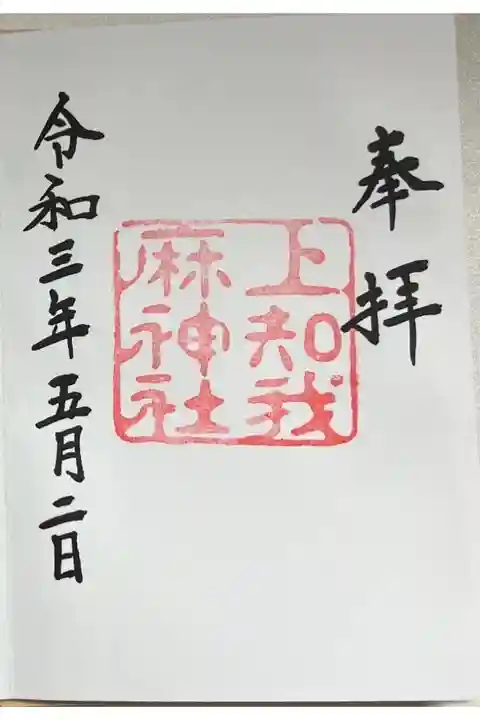 奉拝
上知我
麻神社
令和三年五月二日